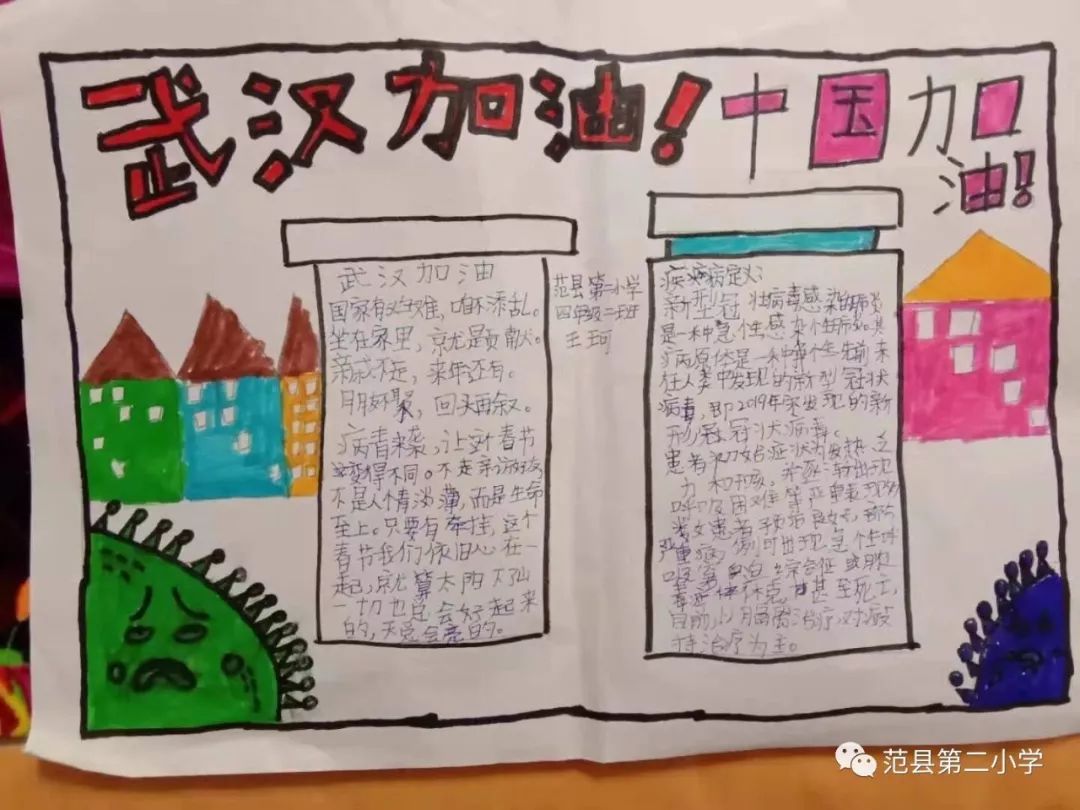 武汉加油!中国加
油!
武汉加油
国家有难,咱不添乱。
坐在家里,就是贡献。
亲戚不走,来年还有。
朋友不聚,回头再叙。
病毒来袭,让这个春节
变得不同。不走亲访好友
不是人情淡薄,而是生命
至上。只要有牵挂,这个
春节我们依旧心在一
起,就算太阳下山
一切也是会好起来
的,天总会亮的。
范县第二小学
四年级二班
王珂
疾病定义:
新型冠状病毒感染的肺炎
是一种急性感染性肺炎。其
病原体是一种先前未
在人类中发现的新型冠状
病毒,即2019年突发现的新
形冠冠状病毒。
患者初始症状为发热、乏
力和干咳,并逐渐出现
呼吸困难等严重表现多
数患者预后良好,部分
严重病例可出现急性呼
吸窘迫综合征或脓
毒症休克甚至死亡,
目前以隔离治疗,对症
持治疗为主。
范县第二小学